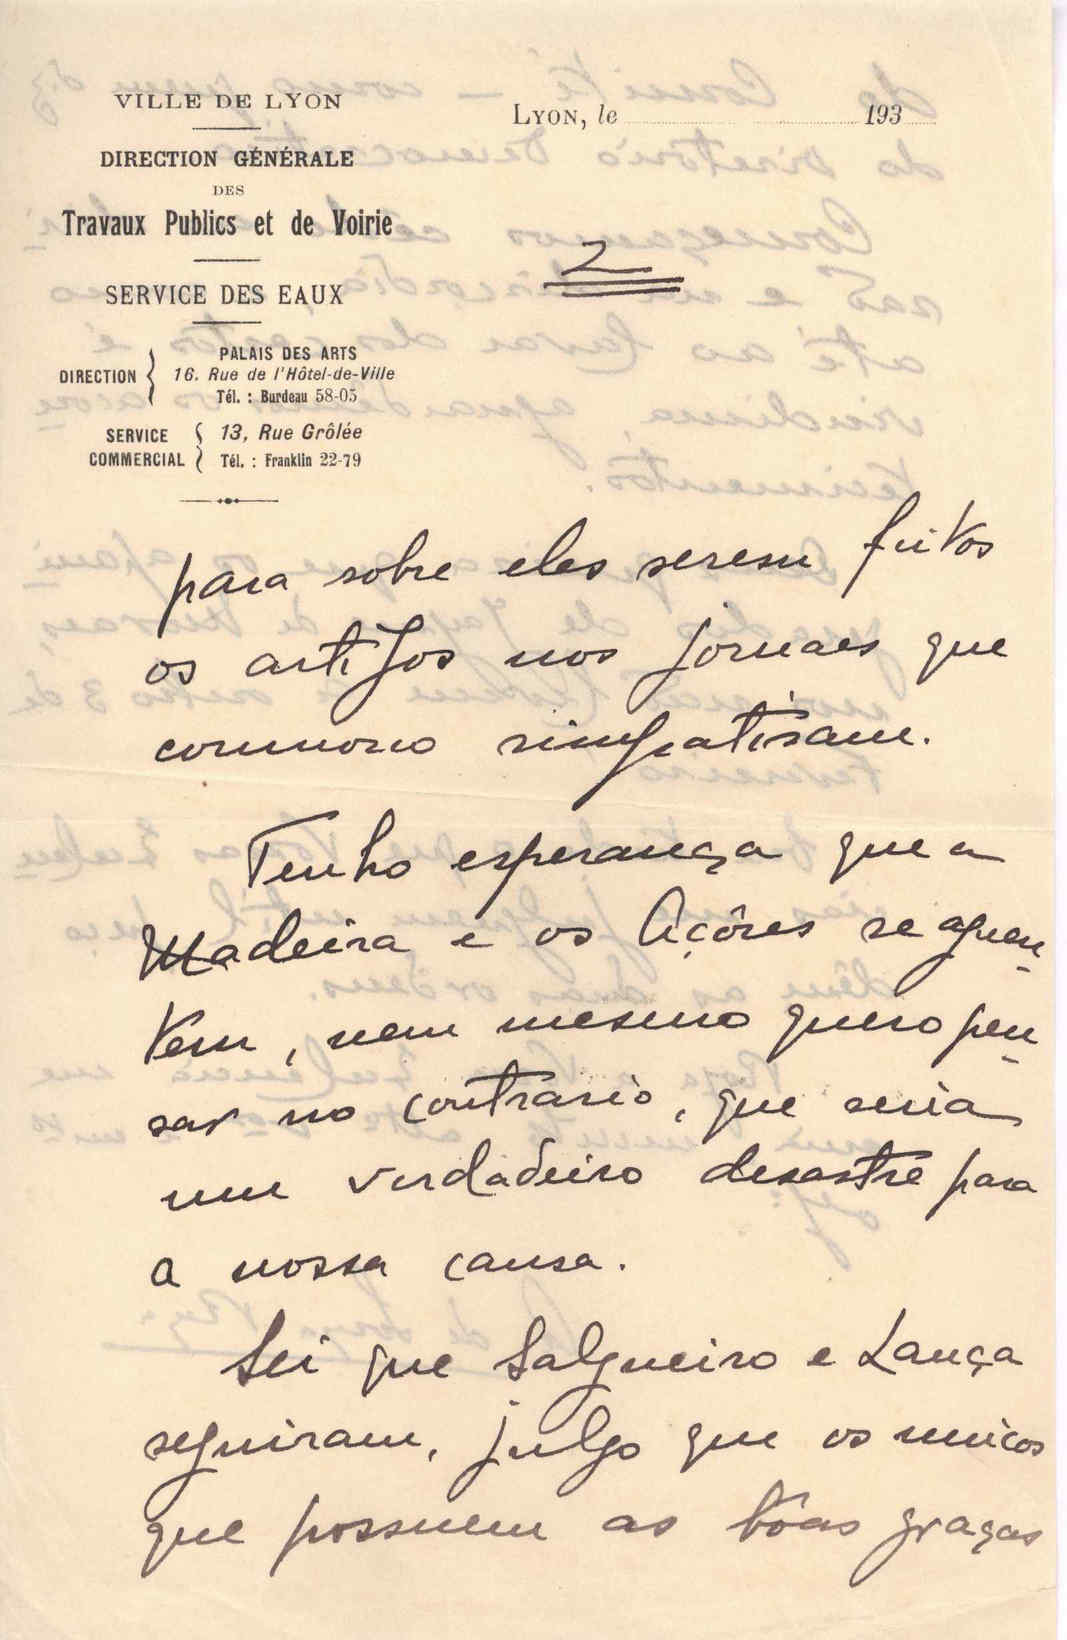 VILLE DE LYON
Lyon, le 193
DIRECTION GÉNÉRALE
DES
Travaux Publics et de Voirie
2
SERVICE DES EAUX
DIRECTION { PALAIS DES ARTS
16. Rue de l'Hôtel-de-Ville
Tél. : Burdeau 58-05
SERVICE COMMERCIAL { 13, Rue Grôlée
Tél. : Franklin 22-79
para sobre eles serem feitos
os artigos nos jornaes que
comnosco simpatisam.
Tenho esperança que a
Madeira e os Açôres se aguen-
tem, nem mesmo quero pen-
sar no contrario, que seria
um verdadeiro desastre para
a nossa causa.
Sei que Salgueiro e Lança
seguiram, julgo que os unicos
que possuem as bôas graças